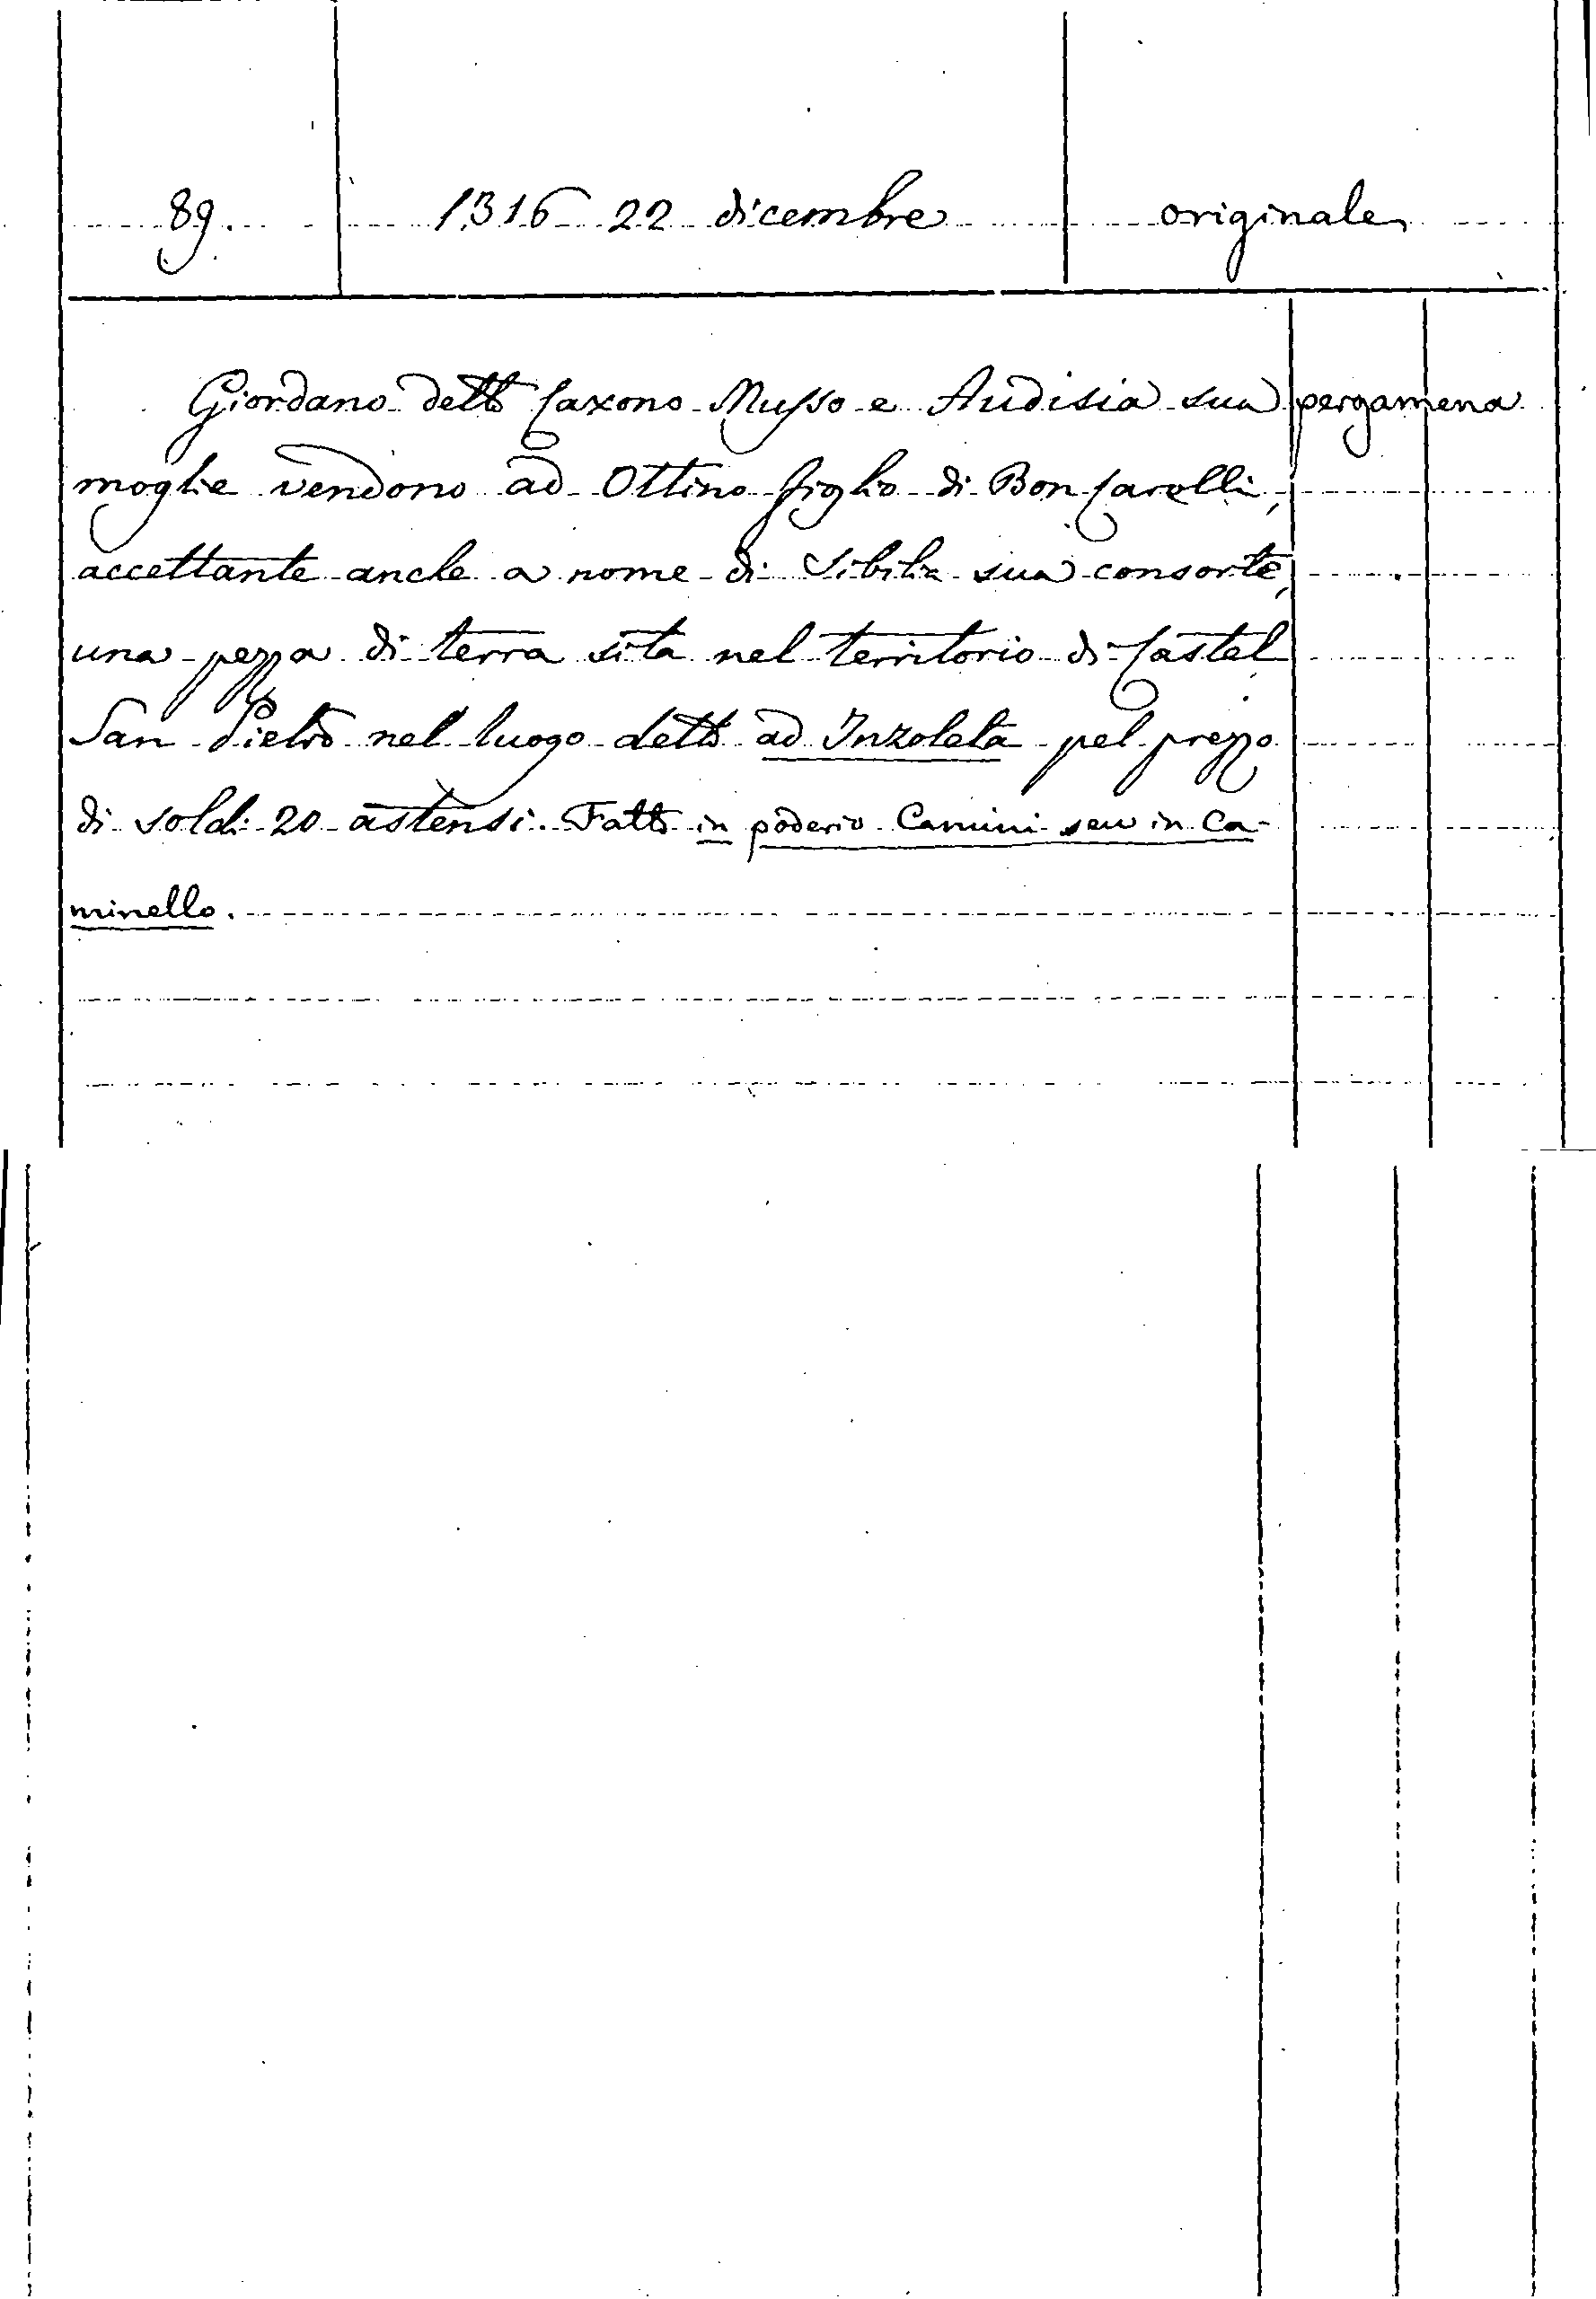 89. 1316 22 dicembre originale
Giordano detto Caxono Musso e Audisia sua pergamena
moglie vendono ad Ottino figlio di Bon Carelli,
accettante anche a nome di Sibilia sua consorte,
una pezza di terra sita nel territorio di Castel
San Pietro nel luogo detto ad Inzoleta pel prezzo
di soldi 20 astensi. Fatto in poderio Camini seu in Ca-
minello.